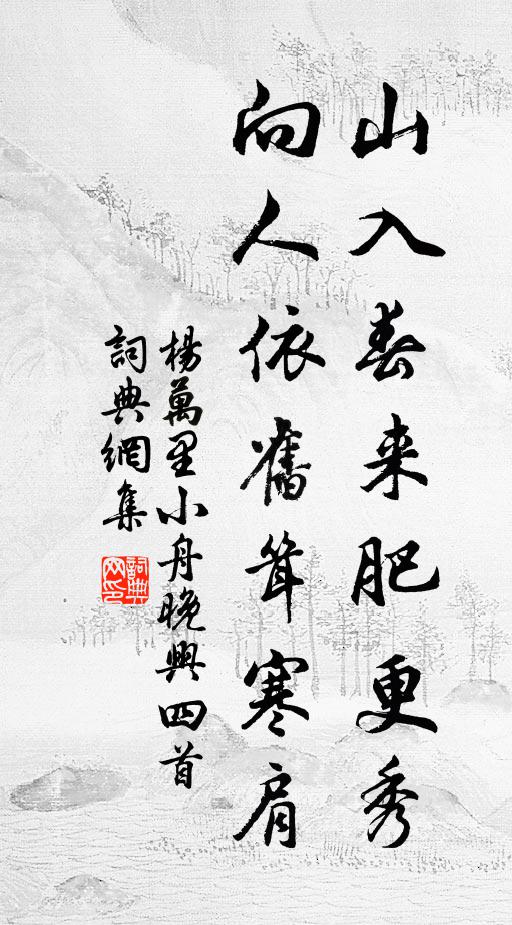 山入春来肥更秀
向人依舊聳寒肩
楊萬里小舟晚興四首
詞典網集
詞典网印